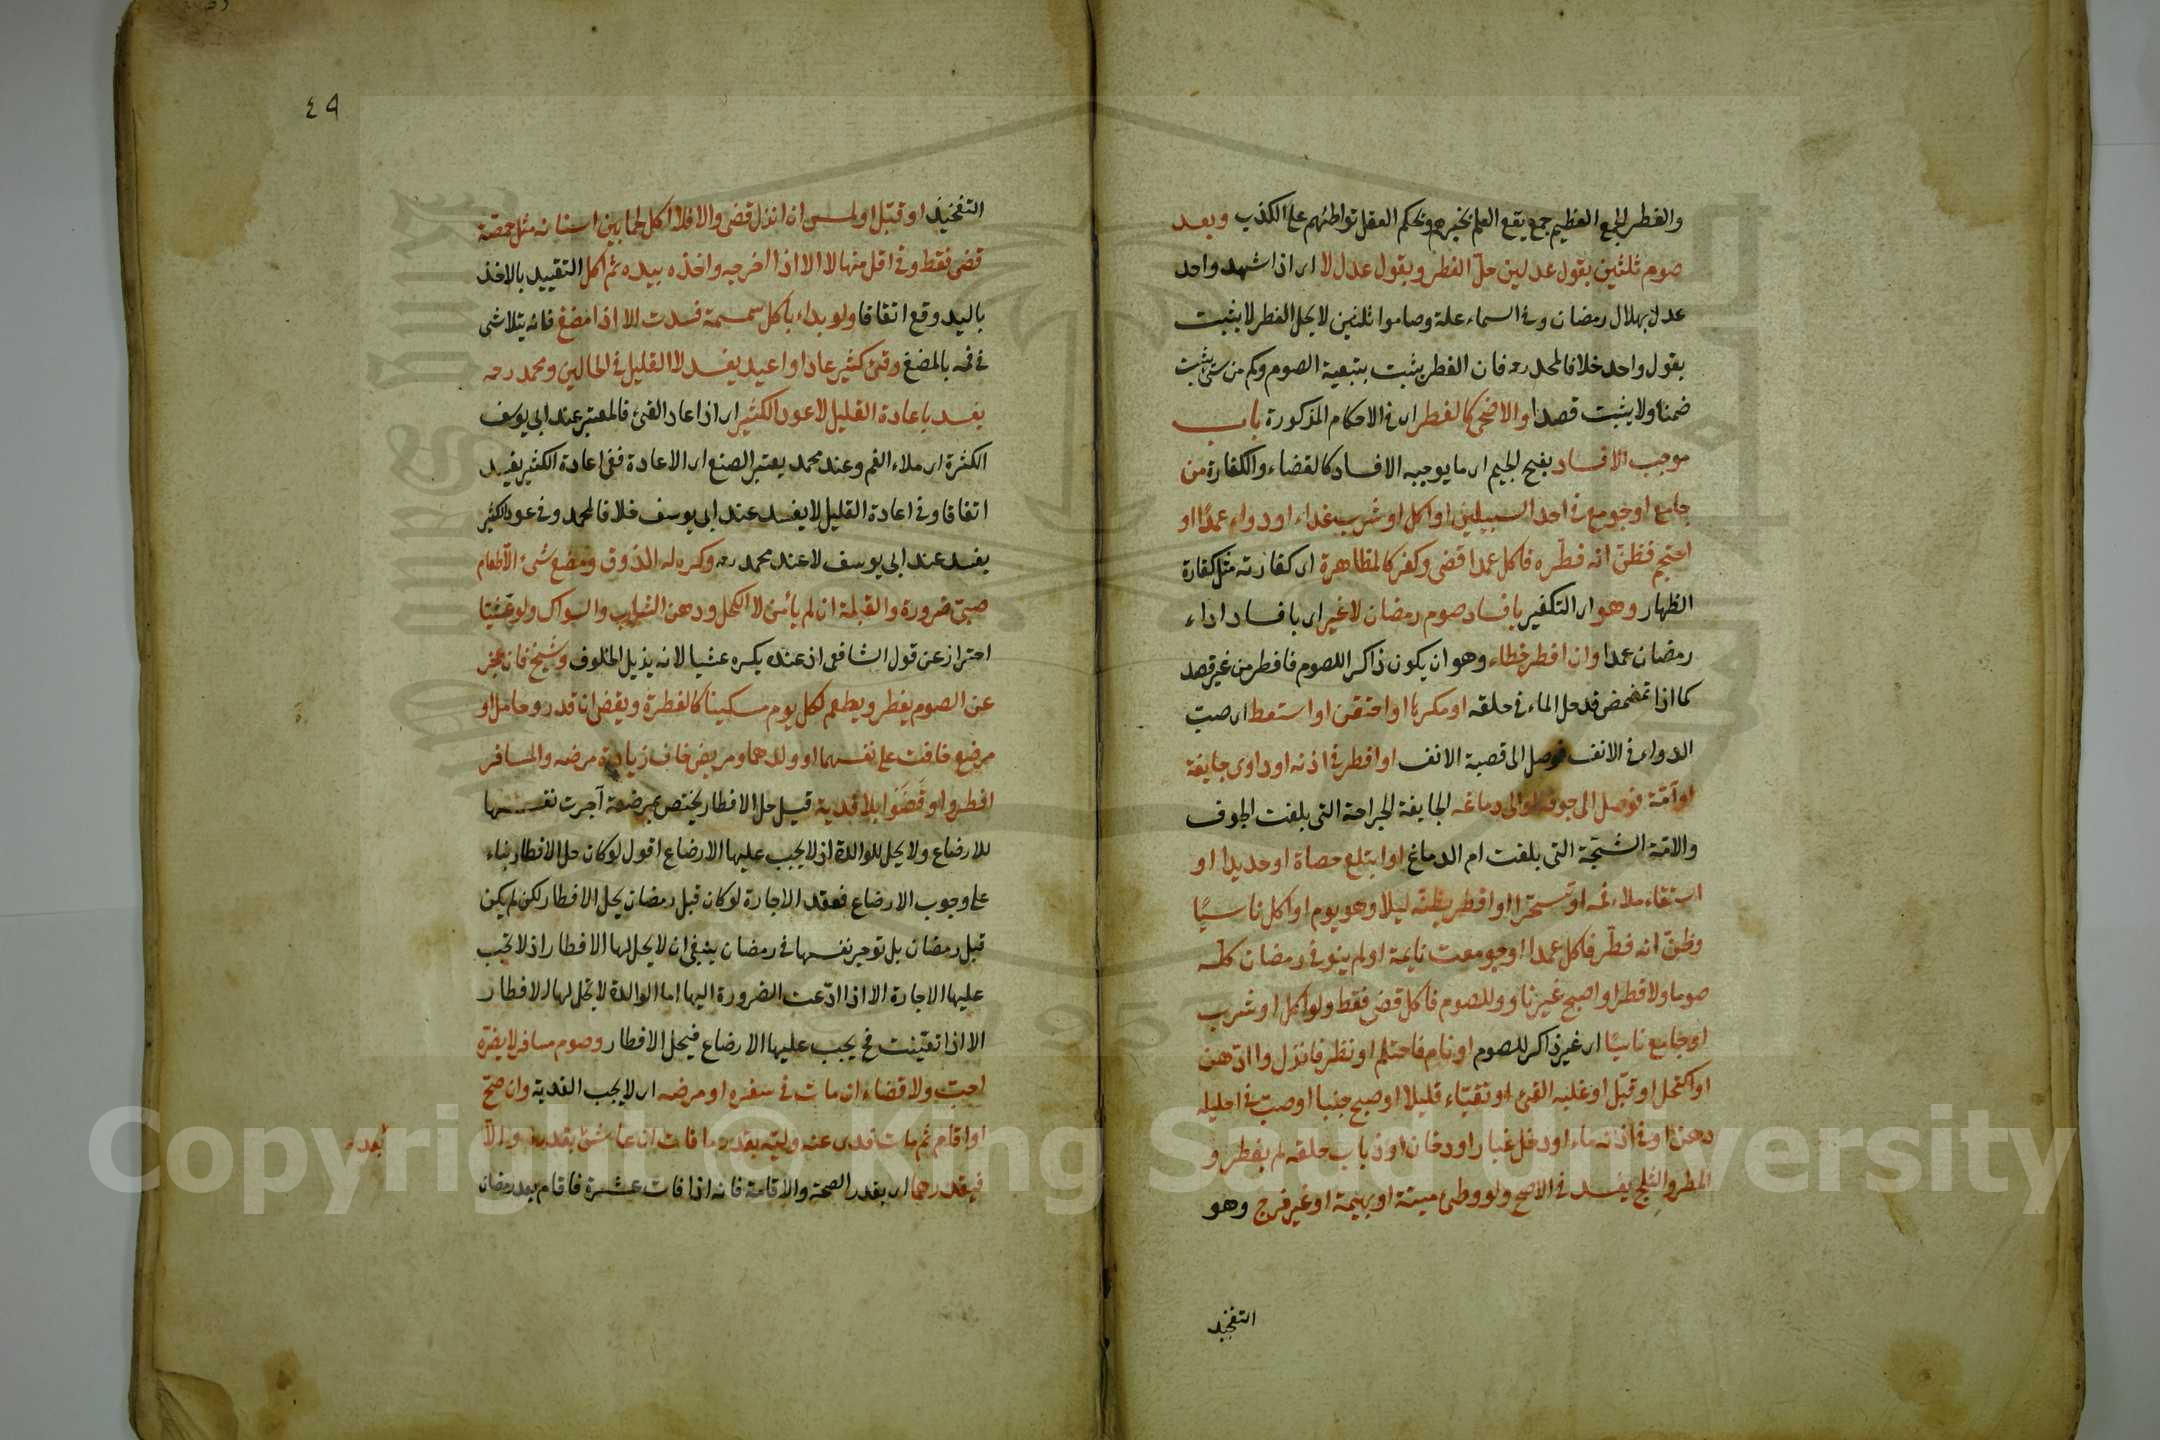 والفطر الجمع العظيم جمع يقع العلم بخبرهم ويحكم العقل تواطئهم على الكذب وبعد
صوم ثلثين بقول عدلين حل الفطر وبقول عدل لا اى اذا شهد واحد
عدل بهلال رمضان وفى السماء علة وصاموا ثلثين لا يحل الفطر لا يثبت
بقول واحد خلافا لمحمد رحه فان الفطر يثبت بتبعية الصوم وكم من شئ يثبت
ضمنا ولا يثبت قصدا والاضحى كالفطر اى فى الاحكام المذكورة باب
موجب الافساد بفتح الجيم اى ما يوجبه الافساد كالقضاء والكفارة من
جامع او جومع فى احد السبيلين او اكل او شرب غداء او دواء عمدًا او
احتجم فظنّ انه فطّره فاكل عمدا قضى وكفر كالمظاهرة اى كفارته مثل كفارة
الظهار وهو اى التكفير بافساد صوم رمضان لا غير اى بافساد اداء
رمضان عمدا وان افطر خطاء وهو ان يكون ذاكرا للصوم فافطر من غير قصد
كما اذا تمضمض فدخل الماء فى حلقه او مكرها او احتقن او استعط اى صبّ
الدواء فى الانف فوصل الى قصبة الانف او اقطر فى اذنه او داوى جايفة
او آمّة فوصل الى جوفه او الى دماغه الجايفة الجراحة التى بلغت الجوف
والامّة الشجّة التى بلغت ام الدماغ او ابتلع حصاة او حديدا او
استقاء ملاء فمه او تسحّر او افطر يظنّه ليلا وهو يوم او اكل ناسيًا
وظنّ انه فطّر فاكل عمدا او جومعت نايمة او لم ينو فى رمضان كله
صوما ولا فطرا او اصبح غير ناو وللصوم فاكل قضى فقط ولو اكل او شرب
او جامع ناسيًا اى غير ذاكر للصوم او نام فاحتلم او نظر فانزل وا ادّهن
او اكتحل او قبّل او غلبه القئ او تقيّاء قليلا او صبح جنبا او صبّ فى احليله
دهن او فى اذنه ماء او دخل غبار او دخان او ذباب حلقه لم يفطر و
المطر والثلج يفسد فى الاصح ولو وطئ ميتة او بهيمة او غير فرج وهو
التفخيذ
٤٩
التفخيذ او قبّل او لمس ان انزل قضى والا فلا اكل لحما بين اسنانه مثل حمصة
قضى فقط وفى اقل منها لا الا اذا اخرجه واخذه بيده ثم اكل التقييد بالاخذ
باليد وقع اتفاقا ولو بداء باكل سمسمة فسدت الا اذا مضغ فانه يتلاشى
فى فمه بالمضغ وقئ كثير عاد او اعيد يفسد لا القليل فى الحالين ومحمد رحه
يفسد باعادة القليل لا عود الكثير اى اذا عاد القئ فالمعتبر عند ابى يوسف
الكثرة اى ملاء الفم وعند محمد يعتبر الصنع اى الاعادة ففى اعادة الكثير يفسد
اتفاقا وفى اعادة القليل لا يفسد عند ابى يوسف خلافا لمحمد وفى عود الكثير
يفسد عند ابى يوسف لا عند محمد رحه وكره له الذوق ومضغ شئ الا طعام
صبىّ ضرورة والقبلة ان لم يأمن لا الكحل ودهن الشارب والسواك ولو عشيّا
احتراز عن قول الشافعى اذ عنده يكره عشيا لانه يزيل الخلوف وشيخ فان عجز
عن الصوم يفطر ويطعم لكل يوم مسكينا كالفطرة ويقضى ان قدر وحامل او
مرضع خافت على نفسهما او ولدهما ومريض خاف زيادة مرضه والمسافر
افطروا وقضوا بلا فدية قيل حل الافطار يختص بمرضعة آجرت نفسها
للارضاع ولا يحل للوالدة اذ لا يجب عليها الارضاع اقول لو كان حل الافطار بناء
على وجوب الارضاع فعقد الاجارة لو كان قبل رمضان يحل الافطار لكن لم يكن
قبل رمضان بل توجر نفسها فى رمضان ينبغى ان لا يحل لها الافطار اذ لا يجب
عليها الاجارة الا اذا ادّعت الضرورة اليها اما الوالدة لا يحل لها الافطار
الا اذا تعيّنت فح يجب عليها الارضاع فيحل الافطار وصوم مسافر لا يضرّه
احبّ ولا قضاء ان مات فى سفره او مرضه اى لا يجب الفدية وان صحّ
او اقام ثم مات فدى عنه وليّه بقدر ما فات ان عاش بقدره والّا
فبقدرهما اى بقدر الصحة والاقامة فانه اذا فات عشرة فاقام بعد رمضان